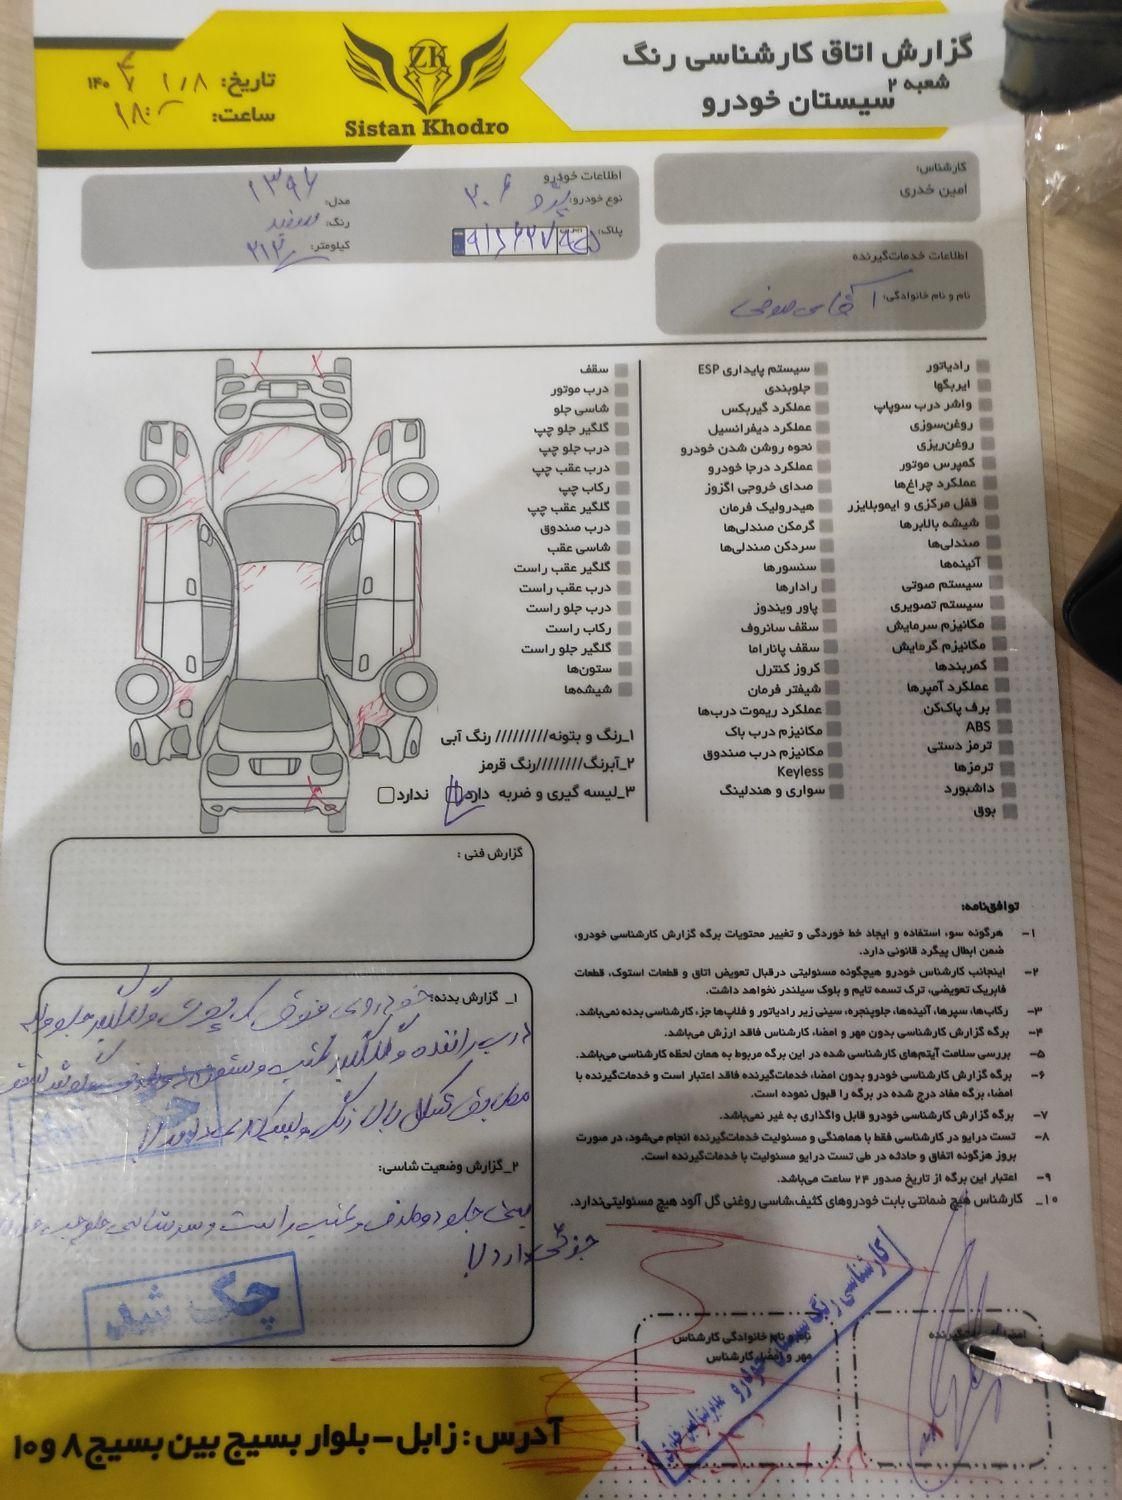 گزارش اتاق کارشناسی رنگ
شعبه ۲
سیستان خودرو
ZK
Sistan Khodro
تاریخ: ۱۴۰
ساعت: ۱۸:
کارشناس:
امین خدری
اطلاعات خودرو
نوع خودرو: پژو ۲۰۶
مدل: ۱۳۹۶
رنگ: سفید
پلاک:
کیلومتر:
اطلاعات خدمات‌گیرنده
نام و نام خانوادگی: آقای صوفی
رادیاتور
ایربگها
واشر درب سوپاپ
روغن‌سوزی
روغن‌ریزی
کمپرس موتور
عملکرد چراغ‌ها
قفل مرکزی و ایموبلایزر
شیشه بالابرها
صندلی‌ها
آئینه‌ها
سیستم صوتی
سیستم تصویری
مکانیزم سرمایش
مکانیزم گرمایش
کمربندها
عملکرد آمپرها
برف پاک‌کن
ABS
ترمز دستی
ترمزها
داشبورد
بوق
سیستم پایداری ESP
جلوبندی
عملکرد گیربکس
عملکرد دیفرانسیل
نحوه روشن شدن خودرو
عملکرد درجا خودرو
صدای خروجی اگزوز
هیدرولیک فرمان
گرمکن صندلی‌ها
سردکن صندلی‌ها
سنسورها
رادارها
پاور ویندوز
سقف سانروف
سقف پاناراما
کروز کنترل
شیفتر فرمان
عملکرد ریموت درب‌ها
مکانیزم درب باک
مکانیزم درب صندوق
Keyless
سواری و هندلینگ
سقف
درب موتور
شاسی جلو
گلگیر جلو چپ
درب جلو چپ
درب عقب چپ
رکاب چپ
گلگیر عقب چپ
درب صندوق
شاسی عقب
گلگیر عقب راست
درب عقب راست
درب جلو راست
رکاب راست
گلگیر جلو راست
ستون‌ها
شیشه‌ها
۱_رنگ و بتونه///////// رنگ آبی
۲_آبرنگ////////رنگ قرمز
۳_لیسه گیری و ضربه دارد ندارد
گزارش فنی :
۱_ گزارش بدنه: خودروی فوق
درب راننده و گلگیر عقب و ستون
مطابق شکل بالا رنگ و لیسه‌گیری دارد
۲_گزارش وضعیت شاسی:
سینی جلو و عقب راست و سرشاسی جلو چپ
جزئی دارد
چک شد
چک شد
توافق‌نامه:
۱- هرگونه سوء استفاده و ایجاد خط خوردگی و تغییر محتویات برگه گزارش کارشناسی خودرو،
ضمن ابطال پیگرد قانونی دارد.
۲- اینجانب کارشناس خودرو هیچگونه مسئولیتی درقبال تعویض اتاق و قطعات استوک، قطعات
فابریک تعویضی، ترک تسمه تایم و بلوک سیلندر نخواهد داشت.
۳- رکاب‌ها، سپرها، آئینه‌ها، جلوپنجره، سینی زیر رادیاتور و فلاپ‌ها جزء کارشناسی بدنه نمی‌باشد.
۴- برگه گزارش کارشناسی بدون مهر و امضاء کارشناس فاقد ارزش می‌باشد.
۵- بررسی سلامت آیتم‌های کارشناسی شده در این برگه مربوط به همان لحظه کارشناسی می‌باشد.
۶- برگه گزارش کارشناسی خودرو بدون امضاء خدمات‌گیرنده فاقد اعتبار است و خدمات‌گیرنده با
امضاء برگه مفاد درج شده در برگه را قبول نموده است.
۷- برگه گزارش کارشناسی خودرو قابل واگذاری به غیر نمی‌باشد.
۸- تست درایو در کارشناسی فقط با هماهنگی و مسئولیت خدمات‌گیرنده انجام می‌شود، در صورت
بروز هرگونه اتفاق و حادثه در طی تست درایو مسئولیت با خدمات‌گیرنده است.
۹- اعتبار این برگه از تاریخ صدور ۲۴ ساعت می‌باشد.
۱۰_ کارشناس هیچ ضمانتی بابت خودروهای کثیف،شاسی روغنی گل آلود هیچ مسئولیتی‌ندارد.
نام و نام خانوادگی کارشناس
مهر و امضاء کارشناس
کارشناسی رنگ سیستان خودرو
آدرس: زابل-بلوار بسیج بین بسیج ۸ و ۱۰